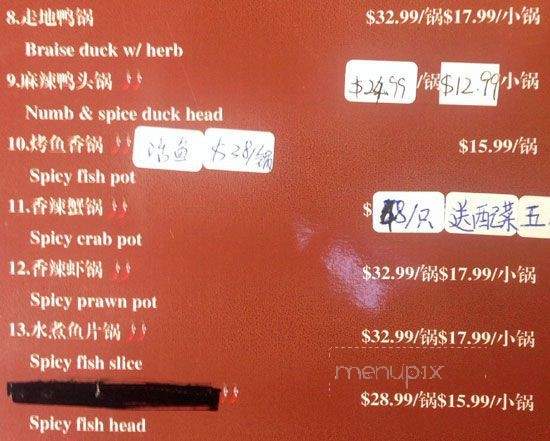 8.走地鸭锅 $32.99/锅$17.99/小锅
Braise duck w/ herb
9.麻辣鸭头锅 $24.99/锅$12.99小锅
Numb & spice duck head
10.烤鱼香锅 活鱼 $38/锅 $15.99/锅
Spicy fish pot
11.香辣蟹锅 $ 8/只 送配菜五
Spicy crab pot
12.香辣虾锅 $32.99/锅$17.99/小锅
Spicy prawn pot
13.水煮鱼片锅 $32.99/锅$17.99/小锅
Spicy fish slice
menupix
$28.99/锅$15.99/小锅
Spicy fish head